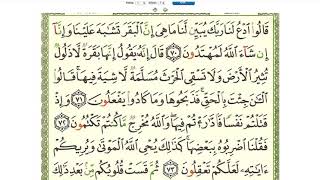 قَالُوا۟ ٱدْعُ لَنَا رَبَّكَ يُبَيِّن لَّنَا مَا هِىَ إِنَّ ٱلْبَقَرَ تَشَٰبَهَ عَلَيْنَا وَإِنَّآ
إِن شَآءَ ٱللَّهُ لَمُهْتَدُونَ ٧٠ قَالَ إِنَّهُۥ يَقُولُ إِنَّهَا بَقَرَةٌ لَّا ذَلُولٌ
تُثِيرُ ٱلْأَرْضَ وَلَا تَسْقِى ٱلْحَرْثَ مُسَلَّمَةٌ لَّا شِيَةَ فِيهَا قَالُوا۟
ٱلْـَٰٔنَ جِئْتَ بِٱلْحَقِّ فَذَبَحُوهَا وَمَا كَادُوا۟ يَفْعَلُونَ ٧١ وَإِذْ
قَتَلْتُمْ نَفْسًا فَٱدَّٰرَْٰٔتُمْ فِيهَا وَٱللَّهُ مُخْرِجٌ مَّا كُنتُمْ تَكْتُمُونَ ٧٢
فَقُلْنَا ٱضْرِبُوهُ بِبَعْضِهَا كَذَٰلِكَ يُحْىِ ٱللَّهُ ٱلْمَوْتَىٰ وَيُرِيكُمْ
ءَايَٰتِهِۦ لَعَلَّكُمْ تَعْقِلُونَ ٧٣ ثُمَّ قَسَتْ قُلُوبُكُم مِّنۢ بَعْدِ ذَٰلِكَ